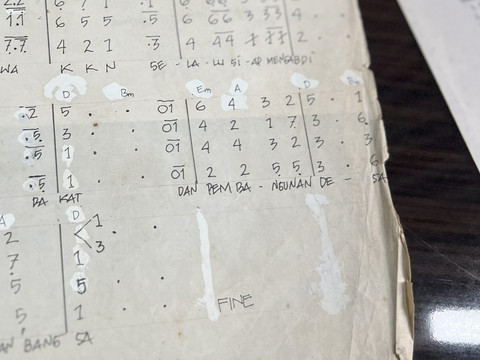 6 7 1
1.1 6 5 5 .5 6 66 3 33 4 .
7.7 4 2 1 .3 4 44 2 . .
WA K K N SE - LA - LU SI - AP MENGABDI
D Bm Em A D Bm
.2 5 . . 01 6 4 3 2 5 . 1
.5 3 . . 01 4 2 1 7 3 . 6
.5 1 . . 01 4 4 3 2 3 . 3
.5 1 . . 01 2 2 5 5 3 . 6
BA KAT DAN PEMBA - NGUNAN DE - SA
A D
2 1
3
7 1
5 5 . .
5 1 . .
AN BANG SA
FINE